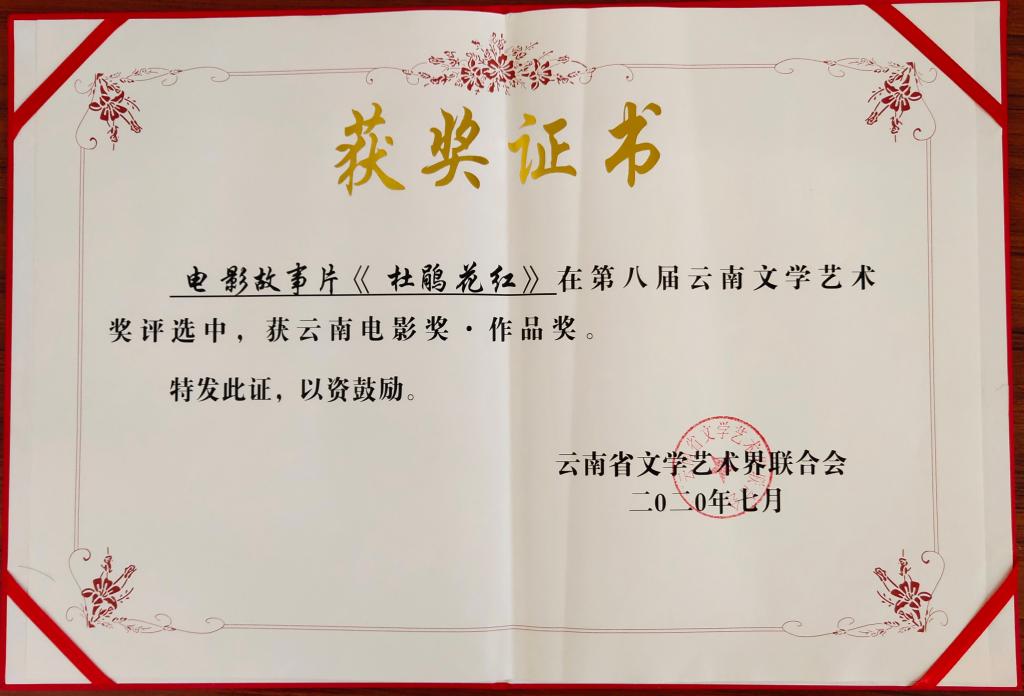 获奖证书
电影故事片《杜鹃花红》在第八届云南文学艺术
奖评选中，获云南电影奖·作品奖。
特发此证，以资鼓励。
云南省文学艺术界联合会
二0二0年七月
云南省文学艺术界联合会